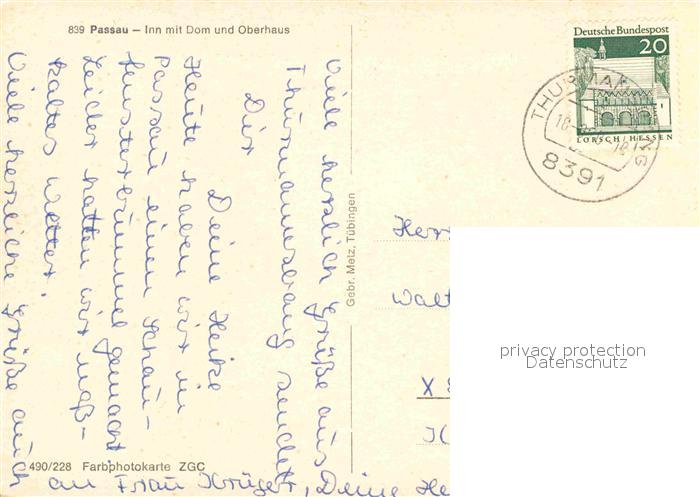 839 Passau – Inn mit Dom und Oberhaus
Deutsche Bundespost
20
LORSCH/HESSEN
THURMANSBANG
8391
Viele herzlich Grüße aus
Thurmannsbang sendet
Dir
Deine Heike
Heute haben wir in
Passau einen Schau-
fensterbummel gemacht.
Leider hatten wir naß-
kaltes Wetter.
Viele herzliche Grüße auch
an Frau Krüger, Deine He
Gebr. Metz, Tübingen
Herr
Walt
X 8
privacy protection
Datenschutz
490/228 Farbphotokarte ZGC